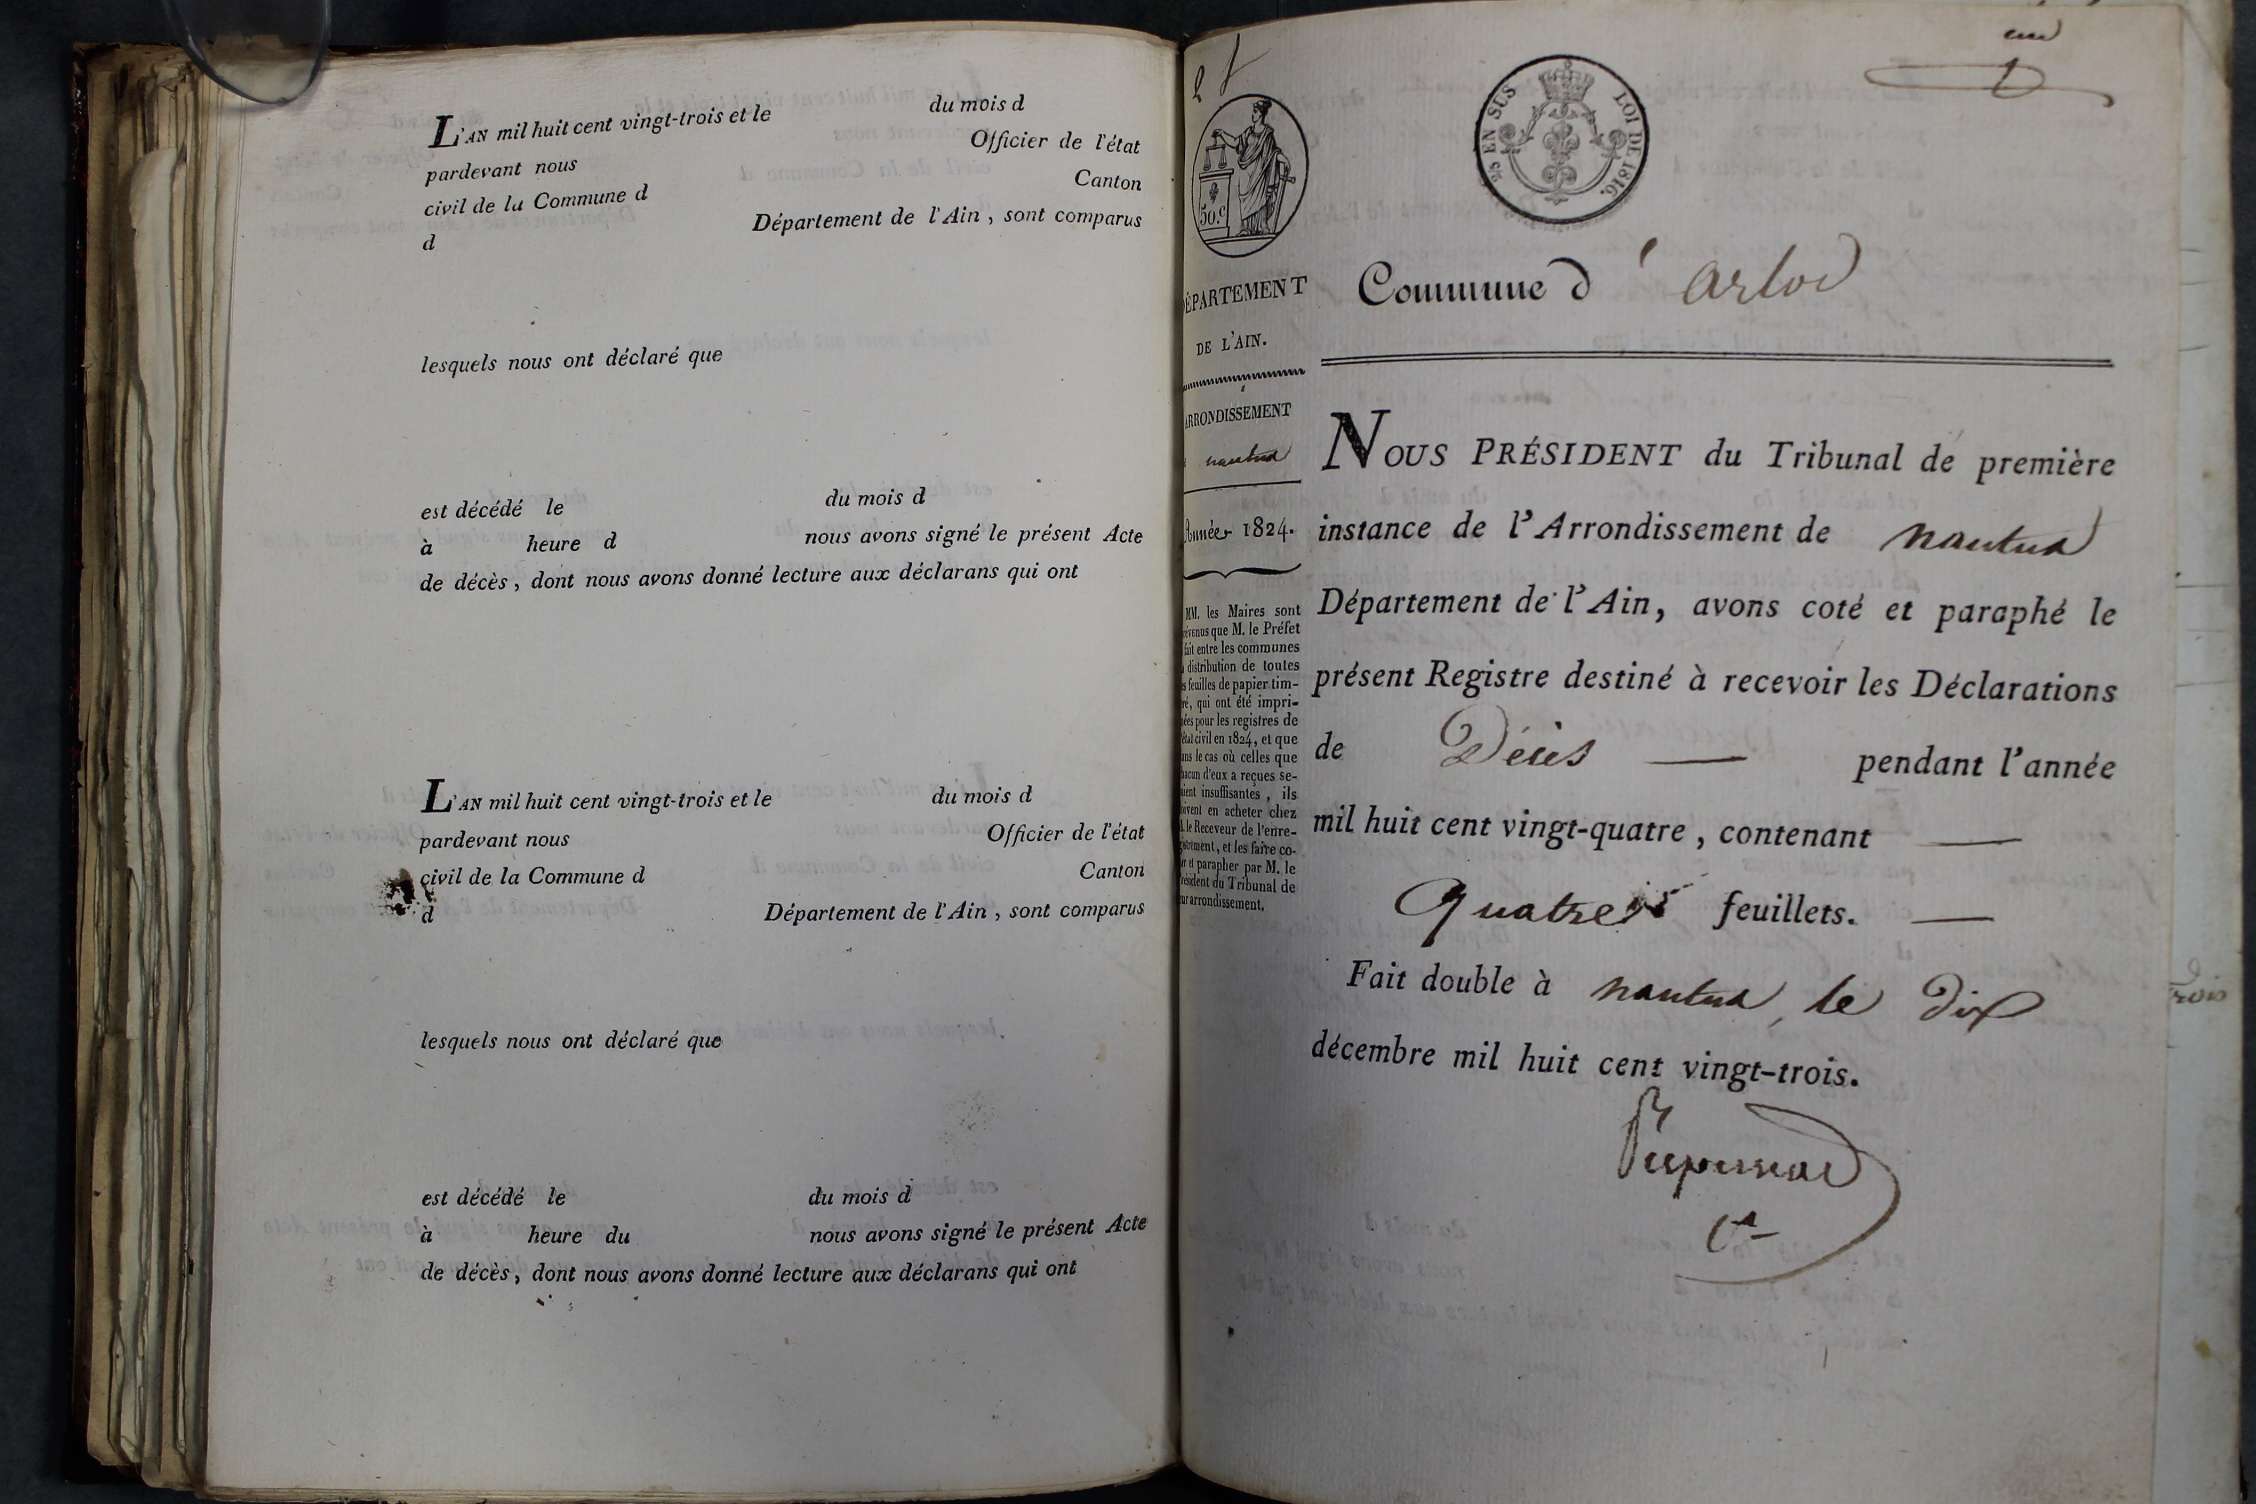 L'AN mil huit cent vingt-trois et le du mois d
pardevant nous Officier de l'état
civil de la Commune d Canton
d Département de l'Ain, sont comparus
lesquels nous ont déclaré que
est décédé le du mois d
à heure d nous avons signé le présent Acte
de décès, dont nous avons donné lecture aux déclarans qui ont
L'AN mil huit cent vingt-trois et le du mois d
pardevant nous Officier de l'état
civil de la Commune d Canton
d Département de l'Ain, sont comparus
lesquels nous ont déclaré que
est décédé le du mois d
à heure du nous avons signé le présent Acte
de décès, dont nous avons donné lecture aux déclarans qui ont
50.c
DÉPARTEMENT
DE L'AIN.
ARRONDISSEMENT
nantua
Année 1824.
MM. les Maires sont
prévenus que M. le Préfet
fait entre les communes
la distribution de toutes
les feuilles de papier tim-
bré, qui ont été impri-
mées pour les registres de
l'état civil en 1824, et que
dans le cas où celles que
chacun d'eux a reçues se-
raient insuffisantes, ils
doivent en acheter chez
M. le Receveur de l'enre-
gistrement, et les faire co-
ter et parapher par M. le
Président du Tribunal de
leur arrondissement.
un
EN SUS LOI DE 1816.
Commune d' arlod
NOUS PRÉSIDENT du Tribunal de première
instance de l'Arrondissement de nantua
Département de l'Ain, avons coté et paraphé le
présent Registre destiné à recevoir les Déclarations
de Décès pendant l'année
mil huit cent vingt-quatre, contenant
quatre feuillets.
Fait double à nantua, le dix
décembre mil huit cent vingt-trois.